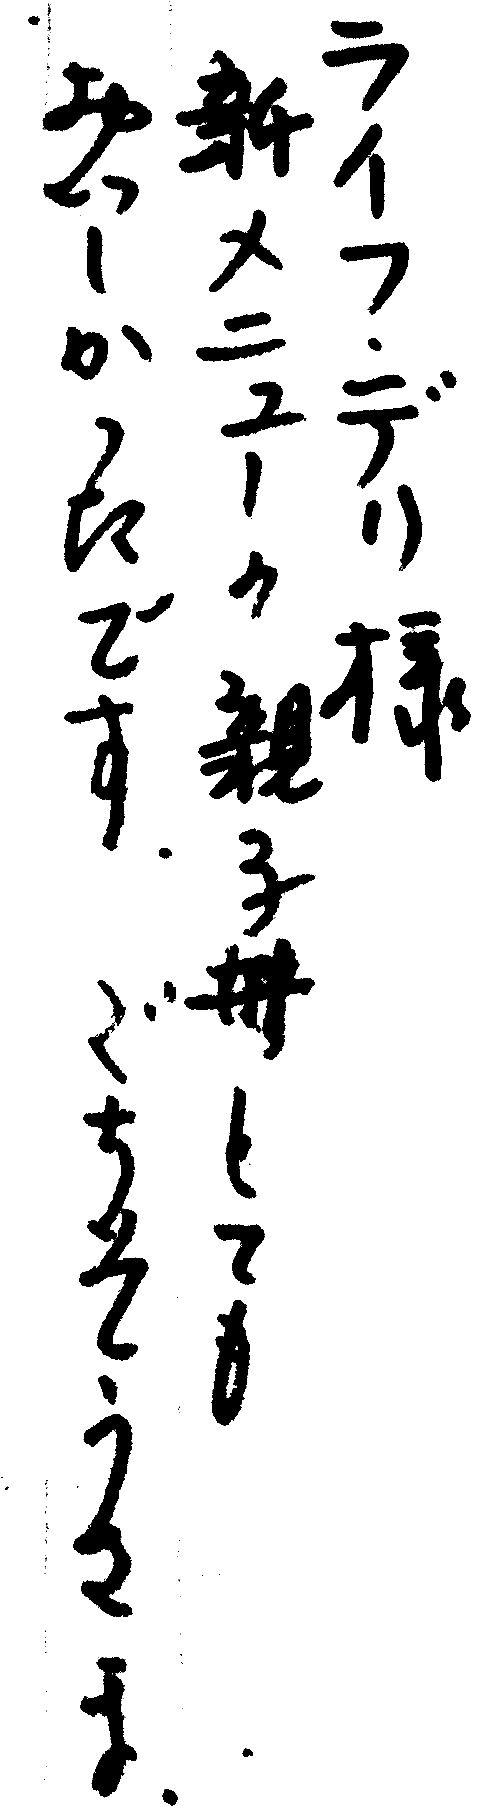 ライフ・デリ様
新メニューの親子丼とても
おいしかったです。ごちそうさま。